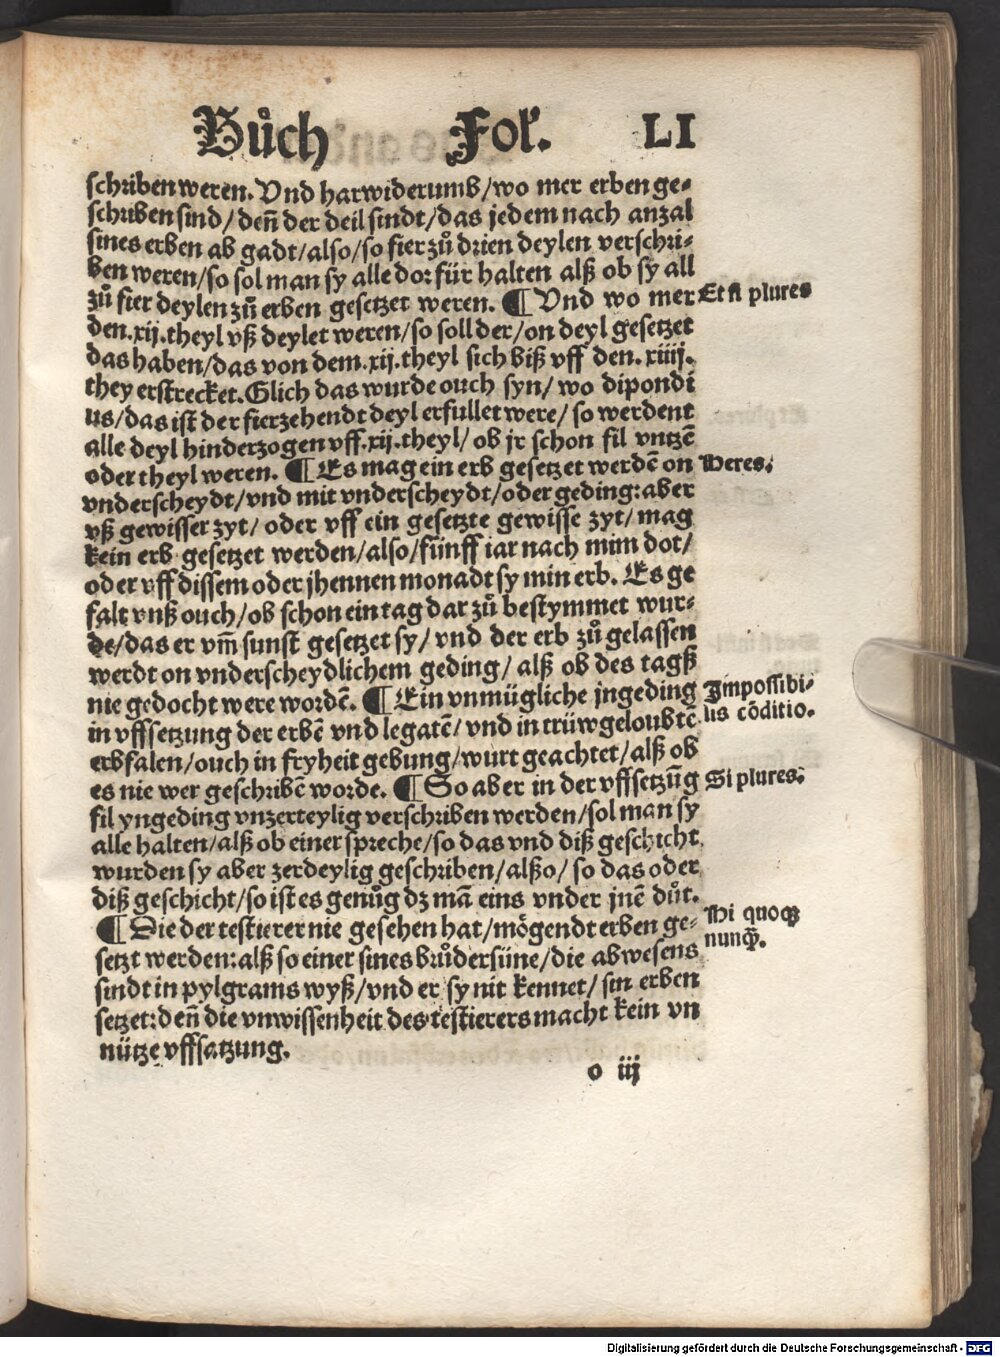 Bůch Fol. LI
schriben weren. Vnd harwiderumb/wo mer erben ge-
schriben sind/ deñ der deil sindt/das jedem nach anzal
sines erben ab gadt/also/so fier zů drien deylen verschri-
ben weren/so sol man sy alle dor für halten alß ob sy all
zů fier deylen zů erben gesetzet weren. ¶ Vnd wo mer
Et si plures
den.xij.theyl vß deylet weren/so soll der/on deyl gesetzet
das haben/das von dem.xij.theyl sich biß vff den.xiiij.
they erstrecket. Glich das wurde ouch syn/ wo dipondi
us/das ist der fierzehendt deyl erfullet were/ so werdent
alle deyl hinderzogen vff.xij.theyl/ ob jr schon fil vntzē
oder theyl weren. ¶ Es mag ein erb gesetzet werdē on
Heres.
vnderscheydt/vnd mit vnderscheydt/oder geding: aber
vß gewisser zyt/ oder vff ein gesetzte gewisse zyt/ mag
kein erb gesetzet werden/also/fünff iar nach mim dot/
oder vff dissem oder jhennen monadt sy min erb. Es ge
falt vnß ouch/ob schon ein tag dar zů bestymmet wur-
de/das er vm̄ sunst gesetzet sy/ vnd der erb zů gelassen
werdt on vnderscheydlichem geding/ alß ob des tagß
nie gedocht were wordē. ¶ Ein vnmügliche jngeding
Impossibi-
in vffsetzung der erbē vnd legatē/ vnd in trüwgeloubtē
lis cōditio.
erbfalen/ouch in fryheit gebung/wurt geachtet/alß ob
es nie wer geschribē worde. ¶ So aber in der vffsetzūg
Si plures.
fil yngeding vnzerteylig verschriben werden/sol man sy
alle halten/alß ob einer spreche/so das vnd diß geschicht
wurden sy aber zerdeylig geschriben/alßo/ so das oder
diß geschicht/so ist es genůg dz mā eins vnder jnē důt.
¶ Die der testierer nie gesehen hat/mögendt erben ge-
Hi quoqȝ
nunq̃.
setzt werden: alß so einer sines brůder süne/die abwesens
sindt in pylgrams wyß/vnd er sy nit kennet/ sin erben
setzet: deñ die vnwissenheit des testierers macht kein vn
nütze vffsatzung.
o iij
Digitalisierung gefördert durch die Deutsche Forschungsgemeinschaft - DFG